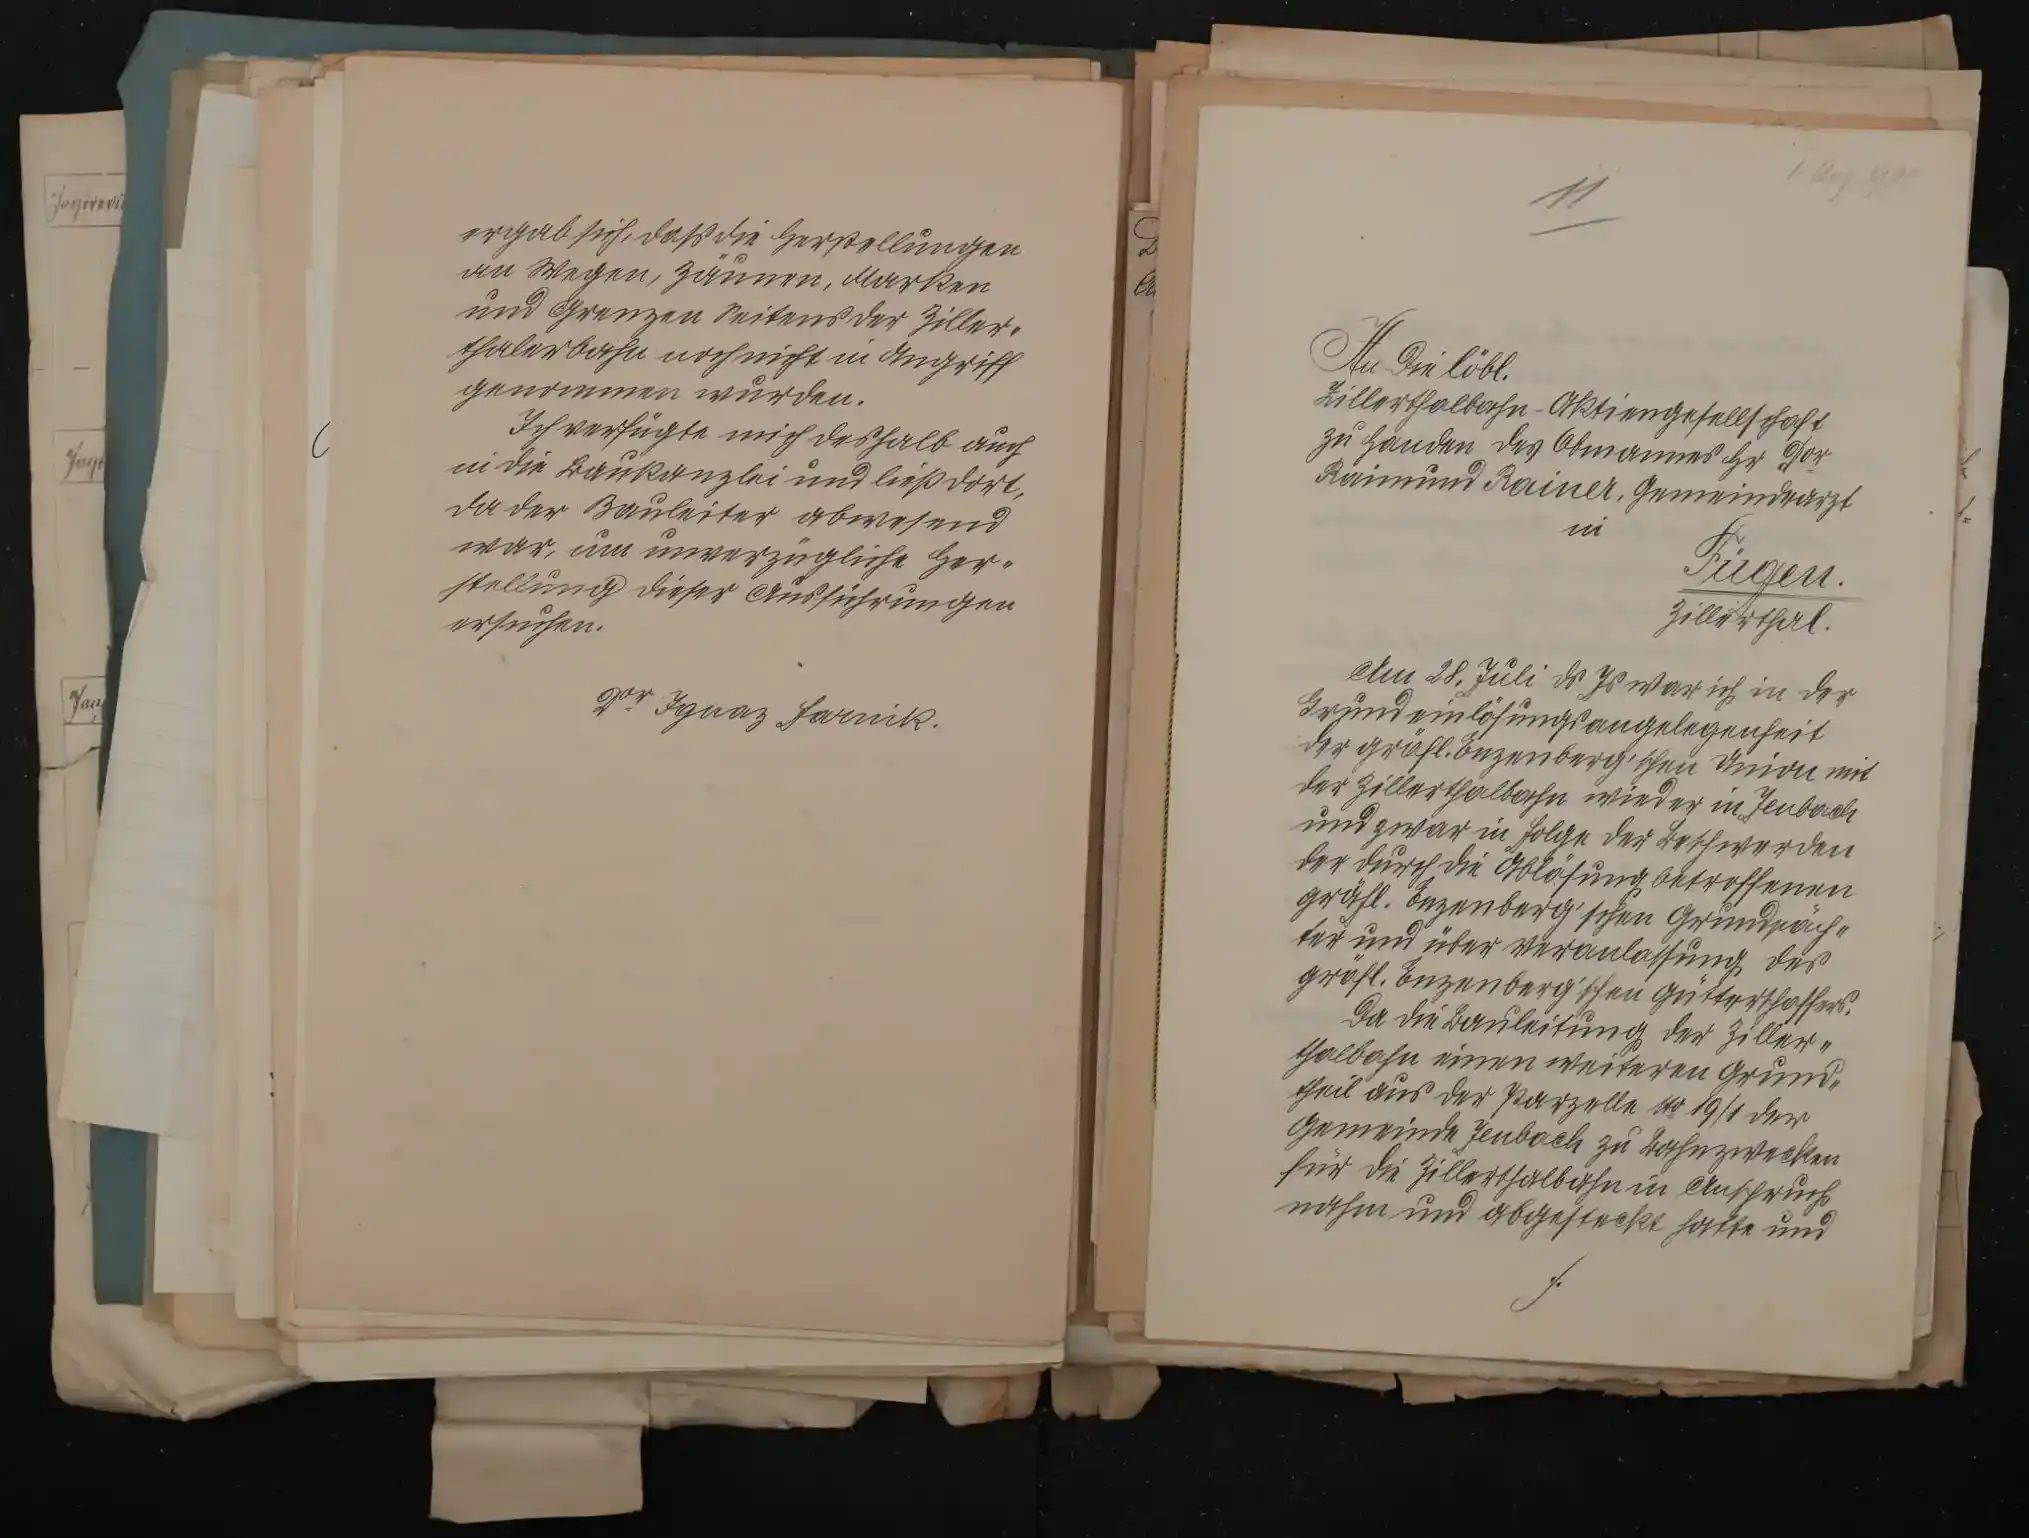 ergab sich, daß die Herstellungen
an Wegen, Zäunen, Marken
und Grenzen Seitens der Ziller-
thalerbahn noch nicht in Angriff
genommen wurden.
Ich verfügte mich deshalb auch
in die Baukanzlei und ließ dort,
da der Bauleiter abwesend
war, um unverzügliche Her-
stellung dieser Ausführungen
ersuchen.
Dor Ignaz Harnik.
11
An die löbl.
Zillerthalbahn-Aktiengesellschaft
zu Handen des Obmannes Hr Dor
Raimund Rainer, Gemeindearzt
in
Fügen.
Zillerthal.
Am 28. Juli ds Js war ich in der
Grundeinlösungsangelegenheit
der gräfl. Enzenberg'schen Union mit
der Zillerthalbahn wieder in Jenbach
und zwar in Folge der Beschwerden
der durch die Ablösung betroffenen
gräfl. Enzenberg'schen Grundpäch-
ter und über Veranlassung des
gräfl. Enzenberg'schen
Da die Bauleitung der Ziller-
thalbahn einen weiteren Grund-
theil aus der Parzelle No 19/1 der
Gemeinde Jenbach zu Bahnzwecken
für die Zillerthalbahn in Anspruch
nahm und abgesteckt hatte und